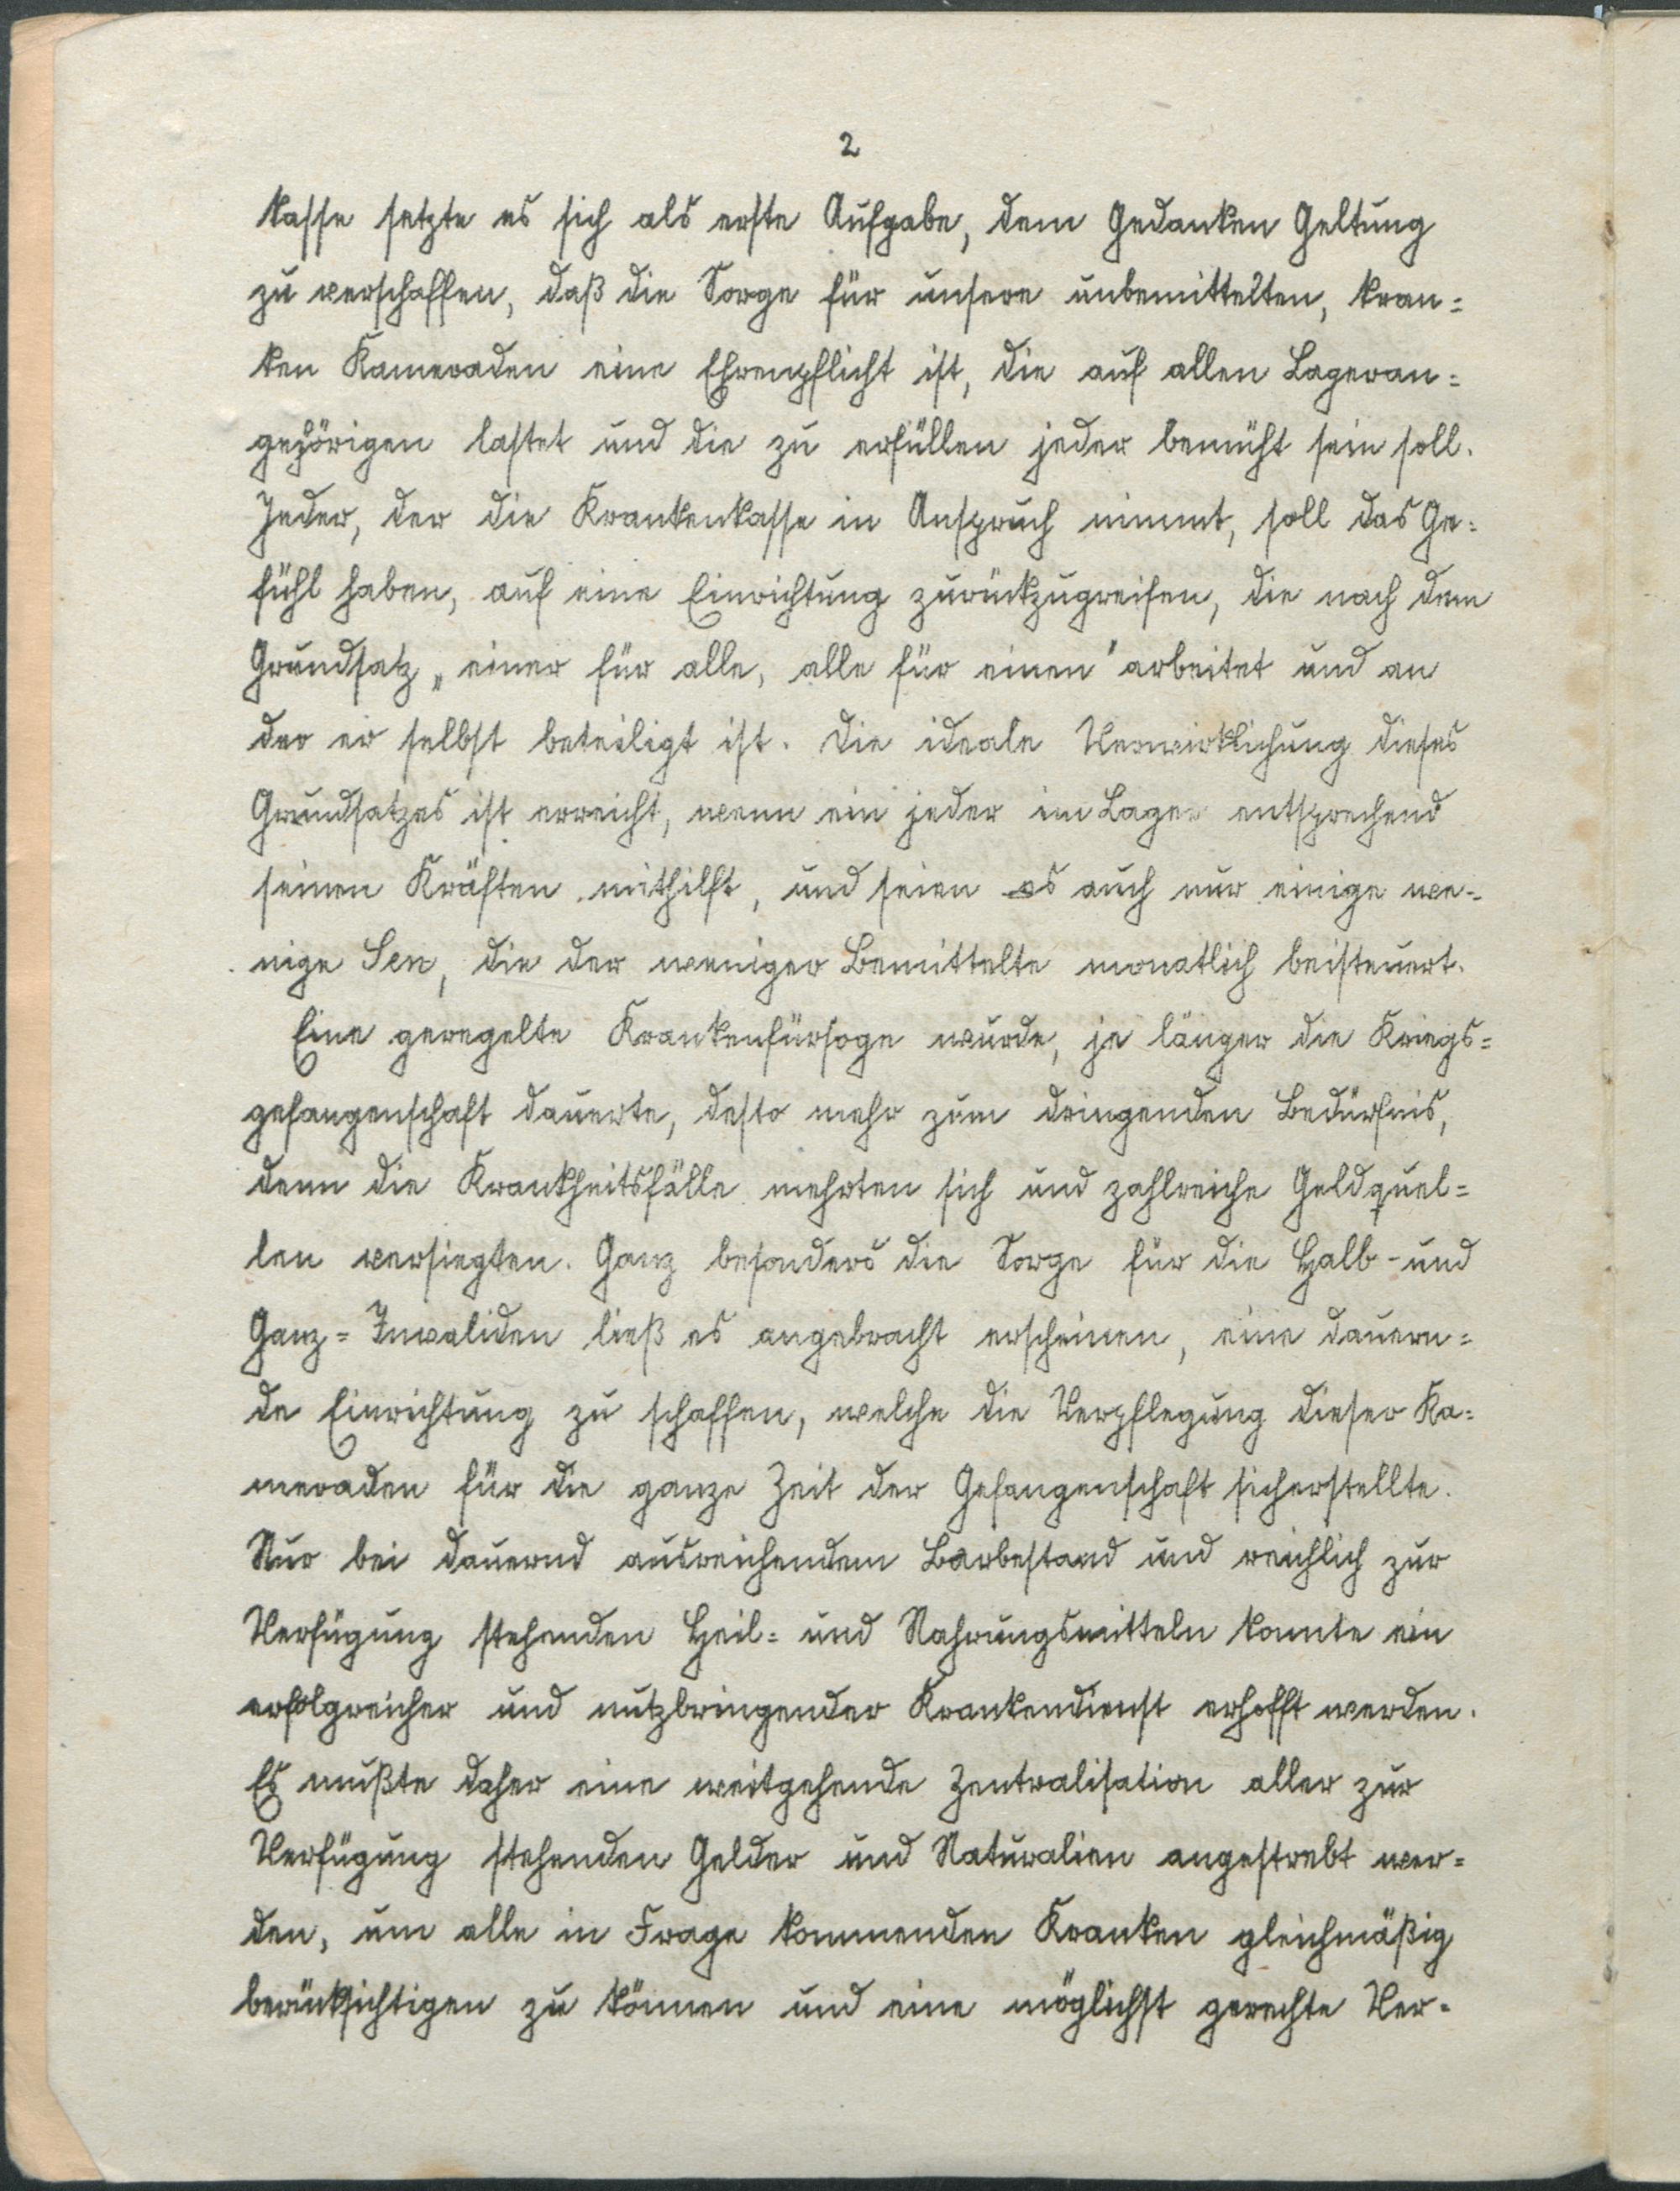 2
kasse setzte es sich als erste Aufgabe, dem Gedanken Geltung
zu verschaffen, daß die Sorge für unsere unbemittelten, kran=
ken Kameraden eine Ehrenpflicht ist, die auf allen Lageran=
gehörigen lastet und die zu erfüllen jeder bemüht sein soll.
Jeder, der die Krankenkasse in Anspruch nimmt, soll das Ge=
fühl haben, auf eine Einrichtung zurückzugreifen, die nach dem
Grundsatz „einer für alle, alle für einen" arbeitet und an
der er selbst beteiligt ist. Die ideale Verwirklichung dieses
Grundsatzes ist erreicht, wenn ein jeder im Lager entsprechend
seinen Kräften mithilft, und seien es auch nur einige we=
nige Sen, die der weniger Bemittelte monatlich beisteuert.
Eine geregelte Krankenfürsoge wurde, je länger die Kriegs=
gefangenschaft dauerte, desto mehr zum dringenden Bedürfnis,
denn die Krankheitsfälle mehrten sich und zahlreiche Geldquel=
len versiegten. Ganz besonders die Sorge für die Halb- und
Ganz=Invaliden ließ es angebracht erscheinen, eine dauern=
de Einrichtung zu schaffen, welche die Verpflegung dieser Ka=
meraden für die ganze Zeit der Gefangenschaft sicherstellte.
Nur bei dauernd ausreichendem Barbestand und reichlich zur
Verfügung stehenden Heil= und Nahrungsmitteln konnte ein
erfolgreicher und nutzbringender Krankendienst erhofft werden.
Es mußte daher eine weitgehende Zentralisation aller zur
Verfügung stehenden Gelder und Naturalien angestrebt wer=
den, um alle in Frage kommenden Kranken gleichmäßig
berücksichtigen zu können und eine möglichst gerechte Ver=